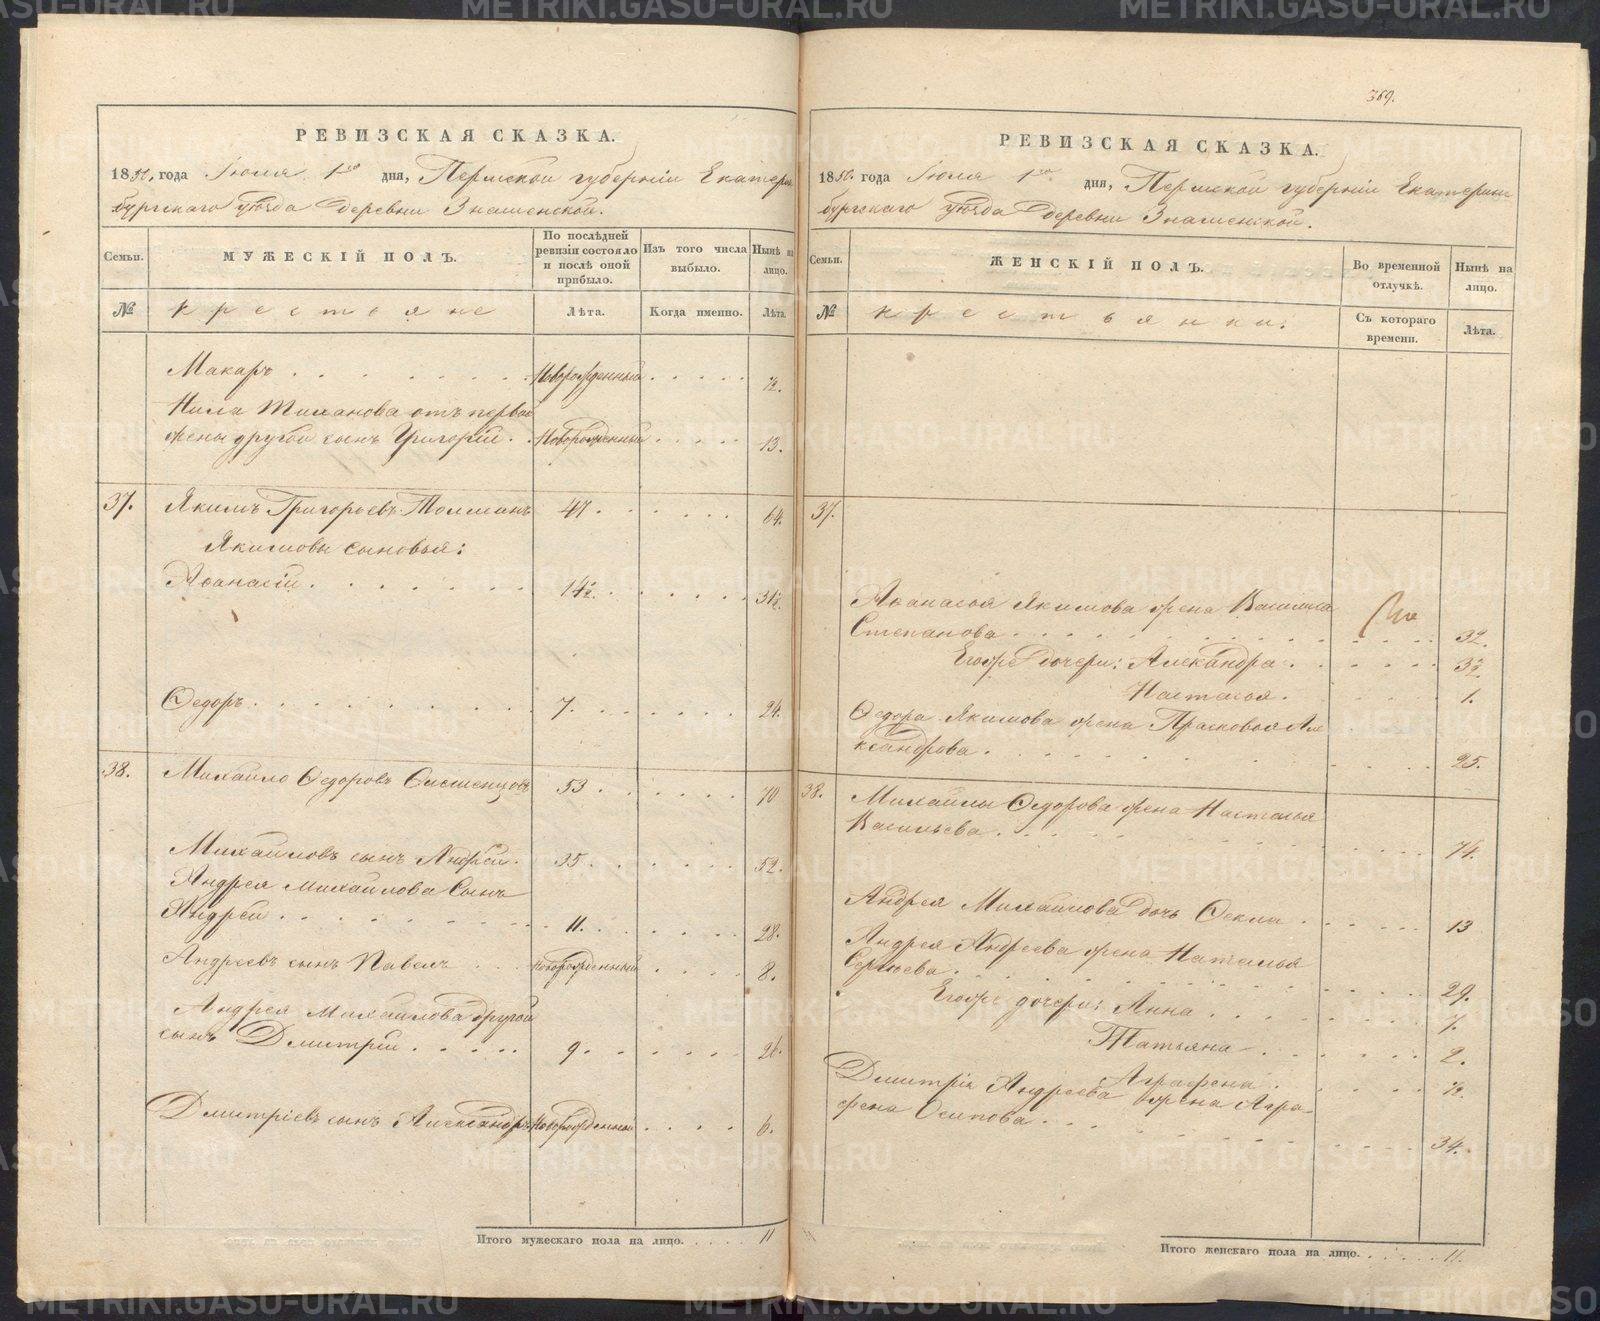 РЕВИЗСКАЯ СКАЗКА.
1850 года Іюля 1го дня, Пермской губерніи Екатерин
бургскаго уѣзда деревни Знаменской.
Семьи.
МУЖЕСКІЙ ПОЛЪ.
По послѣдней ревизіи состояло и послѣ оной прибыло.
Изъ того числа выбыло.
Нынѣ на лицо.
№
крестьяне
Лѣта.
Когда именно.
Лѣта.
Макаръ новорожденный ½.
Нила от первой
жены другой сынъ Григорій новорожденный 13.
37. Якимъ Григорьевъ 47. 64.
Якимовы сыновья:
Аѳанасій. 14½. 31½.
Ѳедоръ. 7. 24.
38. Михайло Ѳедоровъ 53. 70
Михайловъ сынъ Андрей. 35. 52.
Андрея Михайлова Сынъ
Андрей 11. 28.
Андреевъ сынъ Павелъ новорожденный 8.
Андрея Михайлова другой
сынъ Дмитрій 9. 26.
Дмитріевъ сынъ Александръ новорожденный 6.
Итого мужескаго пола на лицо. 11
369.
РЕВИЗСКАЯ СКАЗКА.
1850 года Іюля 1го дня, Пермской губерніи Екатерин
бургскаго уѣзда деревни Знаменской.
Семьи.
ЖЕНСКІЙ ПОЛЪ.
Во временной отлучкѣ.
Нынѣ на лицо.
№
крестьянки.
Съ котораго времени.
Лѣта.
37.
Аѳанасья Якимова жена Василиса
Степанова 32.
Егожъ дочери: Александра 3½.
Настасья. 1.
Ѳедора Якимова жена Прасковья Але
ксандрова. 25.
38. Михайлы Ѳедорова жена Настасья
Васильева 74.
Андрея Михайлова дочь Ѳекла 13
Андрея Андреева жена Наталья
Сергѣева. 29.
Егожъ дочери: Анна 7.
Татьяна 2.
Аграфена. ½.
Дмитрія Андреева жена Агра-
фена Осипова 34.
Итого женскаго пола на лицо. 11.
METRIKI.GASO-URAL.RU